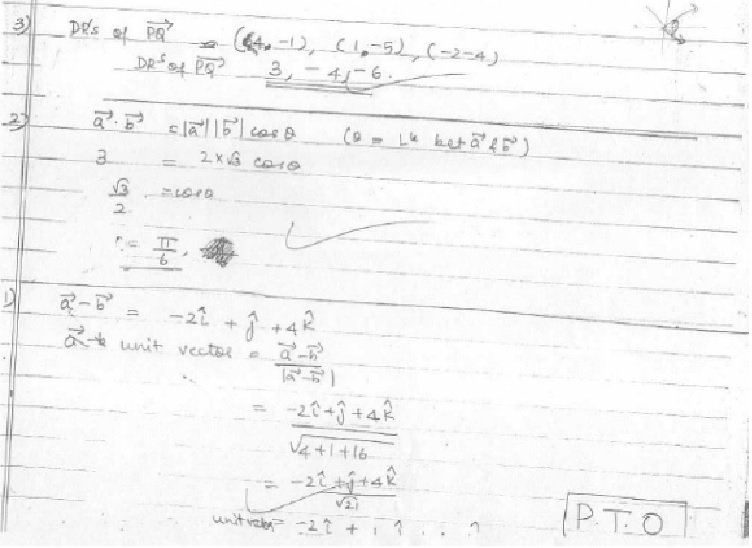 3) DR's of PQ⃗ = (4, -1), (1, -5), (-2-4)
DR's of PQ⃗ 3, -4, -6.
2) a⃗ · b⃗ = |a⃗| |b⃗| cos θ (θ = bet a⃗ & b⃗)
3 = 2×√3 cos θ
√3/2 = cos θ
= π/6.
1) a⃗ - b⃗ = -2î + ĵ + 4k̂
unit vector = a⃗ - b⃗ / |a⃗ - b⃗|
= -2î + ĵ + 4k̂ / √4+1+16
= -2î + ĵ + 4k̂ / √21
unit = -2î +
P.T.O